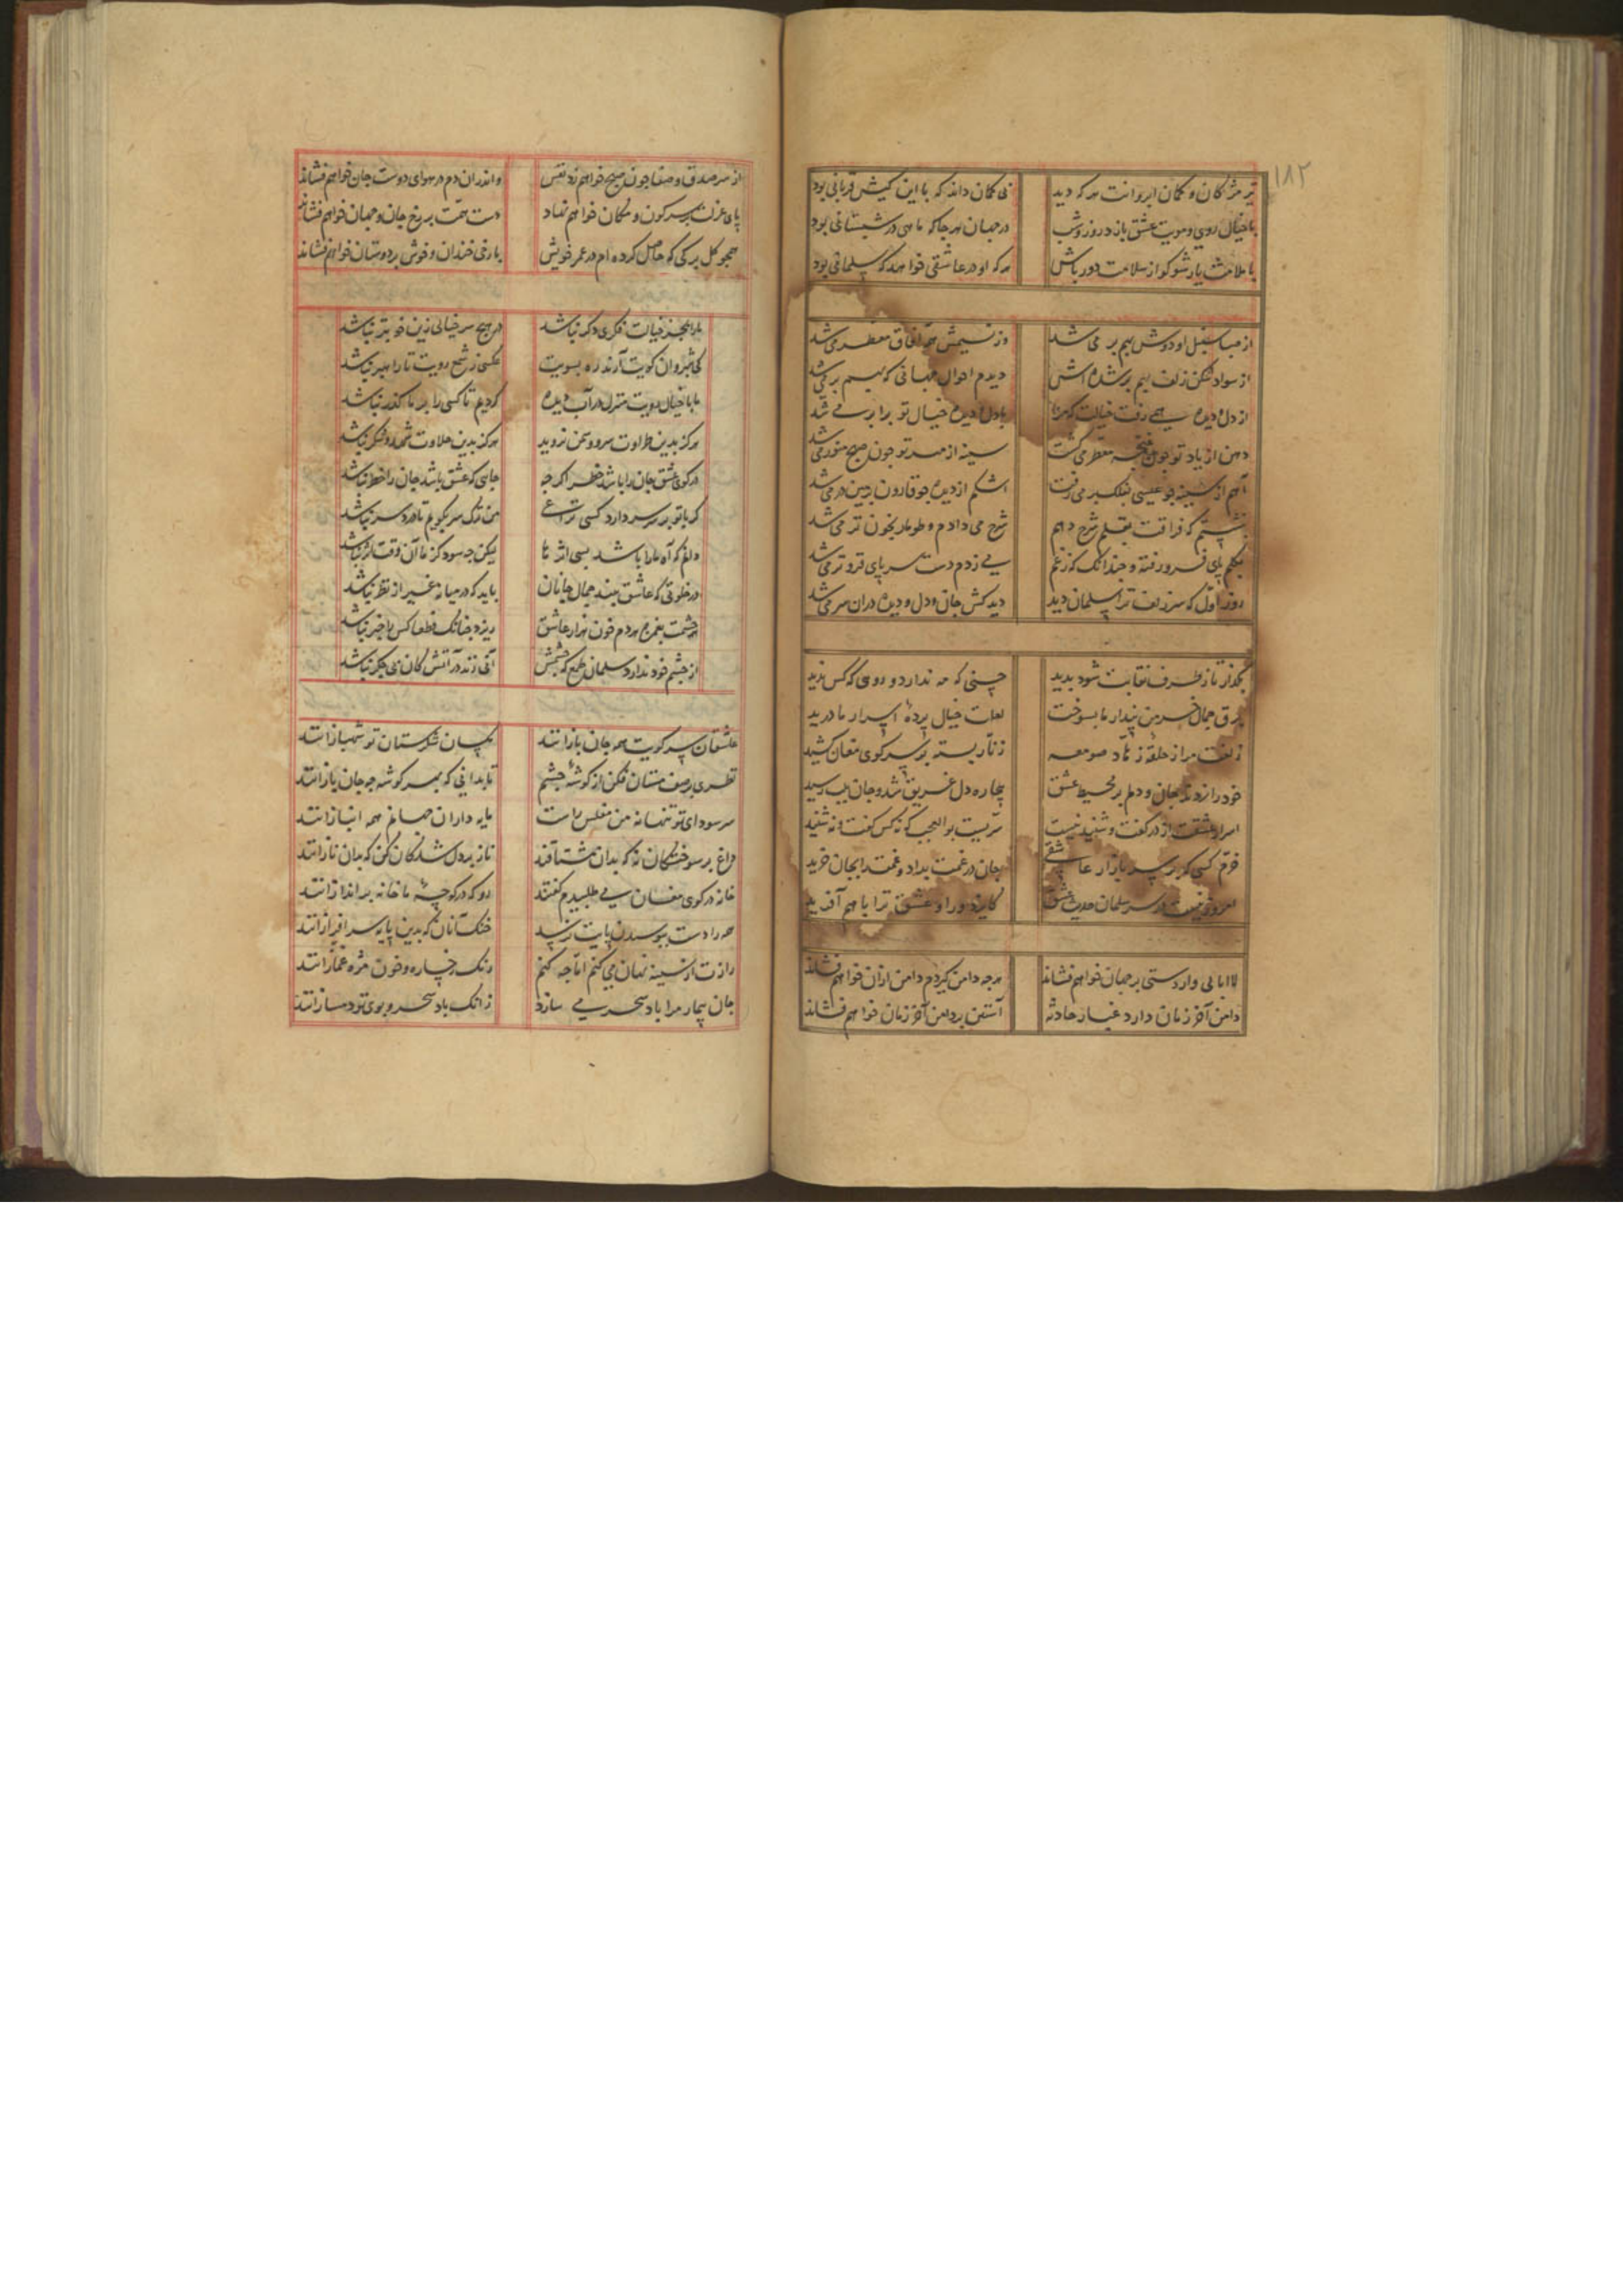 ۱۸۲
تیر مژکان و کمان ابروانت هر که دید بی کمان داند که با این کیش قربانی بود
با خیال روی و مویت عشق بازد روز و شب در جهان هر جا که ماهی در شبستانی بود
با ملامت یار شو کو از سلامت دور باش هر که او در عاشقی خواهد که سلمانی بود
از صبا سنبل او دوش بهم بر می شد وز نسیمش همه آفاق معطر می شد
از سواد شکن زلف بهم بر شده اش دیدم احوال جهانی که بهم بر می شد
از دل و دیده همی رفت خیالت که مرا با دل و دیده خیال تو برابر می شد
دهن از یاد تو چون غنچه معطر می گشت سینه از مهر تو چون صبح منور می شد
آهم از سینه چو عیسی بفلک بر می رفت اشکم از دیده چو قارون بزمین در می شد
نشستم که فراقت بقلم شرح دهم شرح می دادم و طومار بخون تر می شد
بکلم پای فرو رفته و چندانک که ز غم می زدم دست بسر پای فروتر می شد
روز اول که سر زلف ترا سلمان دید دید کش جان و دل و دیده در ان سر می شد
بگذار تا ز طرف نقابت شود بدید حسنی که مه ندارد و روی که کس ندید
برق جمال خرمن پندار ما بسوخت لعلت خیال پرده اسرار ما درید
زلفت مرا ز حلقه زهاد صومعه زنار بسته بر سر کوی مغان کشید
خود را زدند جان و دلم بر محیط عشق بیچاره دل غریق شد و جان بلب رسید
اسرار عشقت از در گفت و شنید نیست سریست بو العجب که نه کس کفت و نه شنید
خرم کسی که بر سر بازار عاشقی جان در غمت بداد و غمت را بجان خرید
امروز نیست در سر سلمان حدیث عشق کایزد ورا و عشق ترا با هم آفرید
لاابالی وار دستی بر جهان خواهم فشاند هرچه دامن کیردم دامن ازان خواهم فشاند
دامن آخر زمان دارد غبار حادثه آستین بر دامن آخر زمان خواهم فشاند
از سر صدق و صفا چون صبح خواهم زد نفس و اندران دم در هوای دوست جان خواهم فشاند
پای عزلت بر سر کون و مکان خواهم نهاد دست همت بر رخ جان و جهان خواهم فشاند
همچو کل برکی که حاصل کرده ام در عمر خویش با رخی خندان و خوش بر دوستان خواهم فشاند
ما را بجز خیالت فکری دکر نباشد در هیچ سر خیالی زین خوبتر نباشد
کی شبروان کویت آرند ره بسویت عکسی ز شمع رویت تا راهبر نباشد
ما با خیال رویت منزل در آب دیده کردیم تا کسی را بر ما کذر نباشد
هرکز بدین طراوت سرو و چمن نروید هرکز بدین حلاوت شهد و شکر نباشد
در کوی عشق جان را باشد خطر اکرچه جایی که عشق باشد جان را خطر نباشد
کر با تو بر سر و زر دارد کسی نزاعی من ترک سر بکویم تا درد سر نباشد
دانم که آه ما را باشد بسی اثرها لیکن چه سود کز ما آن وقت اثر نباشد
در خلوتی که عاشق بیند جمال جانان باید که در میانه غیر از نظر نباشد
چشمت بغمزه هر دم خون هزار عاشق ریزد چنانک قطعا کس را خبر نباشد
از چشم خود ندارد سلمان طمع که چشمش آبی زند بر آتش کان بی جکر نباشد
عاشقان سر کویت همه جان بازانند شهبازانند
نظری بر صف مستان فکن از کوشه چشم تا بدانی که بهر کوشه چه جان بازانند
سر سودای تو تنها نه من مفلس راست مایه داران جهان هم همه انبازانند
داغ بر سوختکان نه که بدان مشتاقند ناز بر دل شدکان کن که بدان نازانند
خانه در کوی مغان می طلبیدم کفتند رو که در کوچه ما خانه براندازانند
همه را دست ببوسیدن پایت نرسد خنک آنان که بدین پایه سرافرازانند
رازت از سینه نهان می کنم اما چه کنم رنک رخساره و خون مژه غمازانند
جان بیمار مرا باد سحر می سازد زانک باد سحر و بوی تو دمسازانند